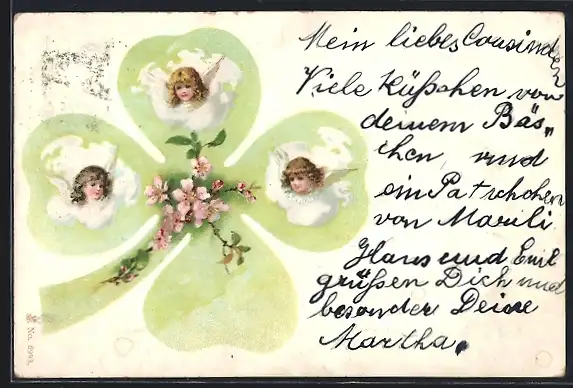 Mein liebes Cousinchen
Viele Küßchen von
deinem Bäs„
chen, und
ein Patschchen
von Marili.
Hans und Emil
grüßen Dich und
besonder Deine
Martha.